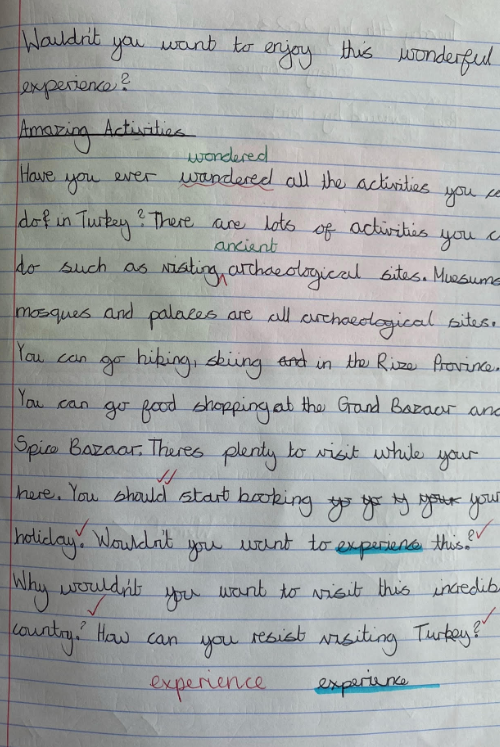 Wouldn't you want to enjoy this wonderful
experience?
Amazing Activities
wondered
Have you ever wandered all the activities you
do? in Turkey? There are lots of activities you
ancient
do such as visiting archaeological sites. Muesums
mosques and palaces are all archaeological sites.
You can go hiking, skiing and in the Rize Province.
You can go food shopping at the Grand Bazaar and
Spice Bazaar. Theres plenty to visit while your
here. You should start booking your
holiday. Wouldn't you want to experiens this?
Why wouldn't you want to visit this
country? How can you resist visiting Turkey?
experience experience